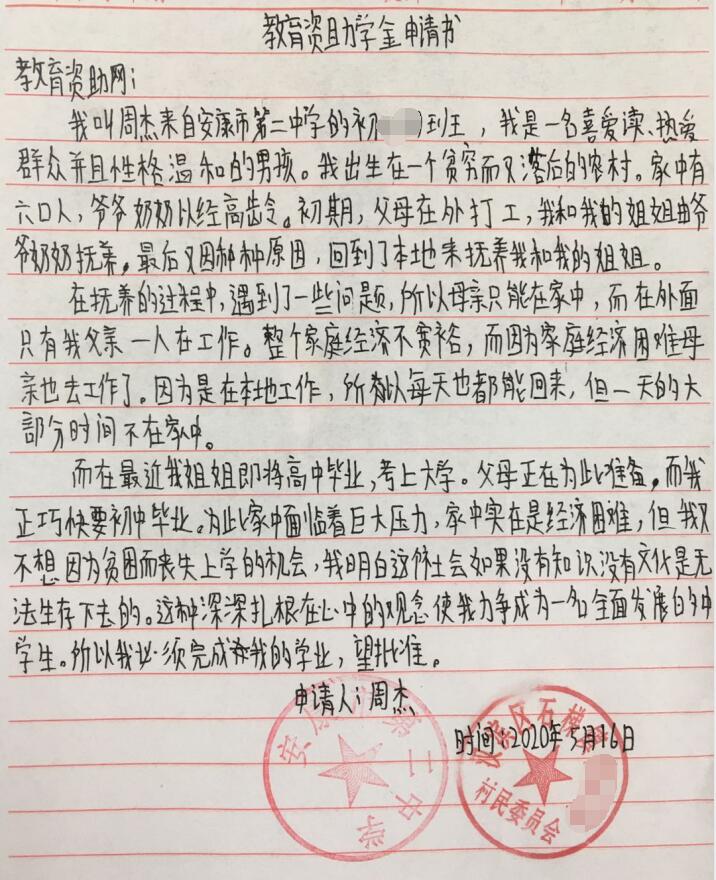 教育资助学金申请书
教育资助网：
我叫周杰来自安康市第二中学的初到王，我是一名喜爱读、热爱
群众并且性格温和的男孩。我出生在一个贫穷而又落后的农村。家中有
六口人，爷爷奶奶以经高龄。初期，父母在外打工，我和我的姐姐由爷
爷奶奶抚养。最后又因种种原因，回到了本地来抚养我和我的姐姐。
在抚养的过程中，遇到了一些问题，所以母亲只能在家中，而在外面
只有我父亲一人在工作。整个家庭经济不富裕，而因为家庭经济困难母
亲也去工作了。因为是在本地工作，所以每天也都能回来，但一天的大
部分时间不在家中。
而在最近我姐姐即将高中毕业，考上大学。父母正在为此准备。而我
正巧快要初中毕业。为此家中面临着巨大压力，家中实在是经济困难，但我又
不想因为贫困而丧失上学的机会，我明白这个社会如果没有知识没有文化是无
法生存下去的。这种深深扎根在心中的观念使我力争成为一名全面发展的中
学生。所以我必须完成我的学业，望批准。
申请人：周杰
时间：2020年5月16日
安康市第二中学
汉滨区石梯
村民委员会